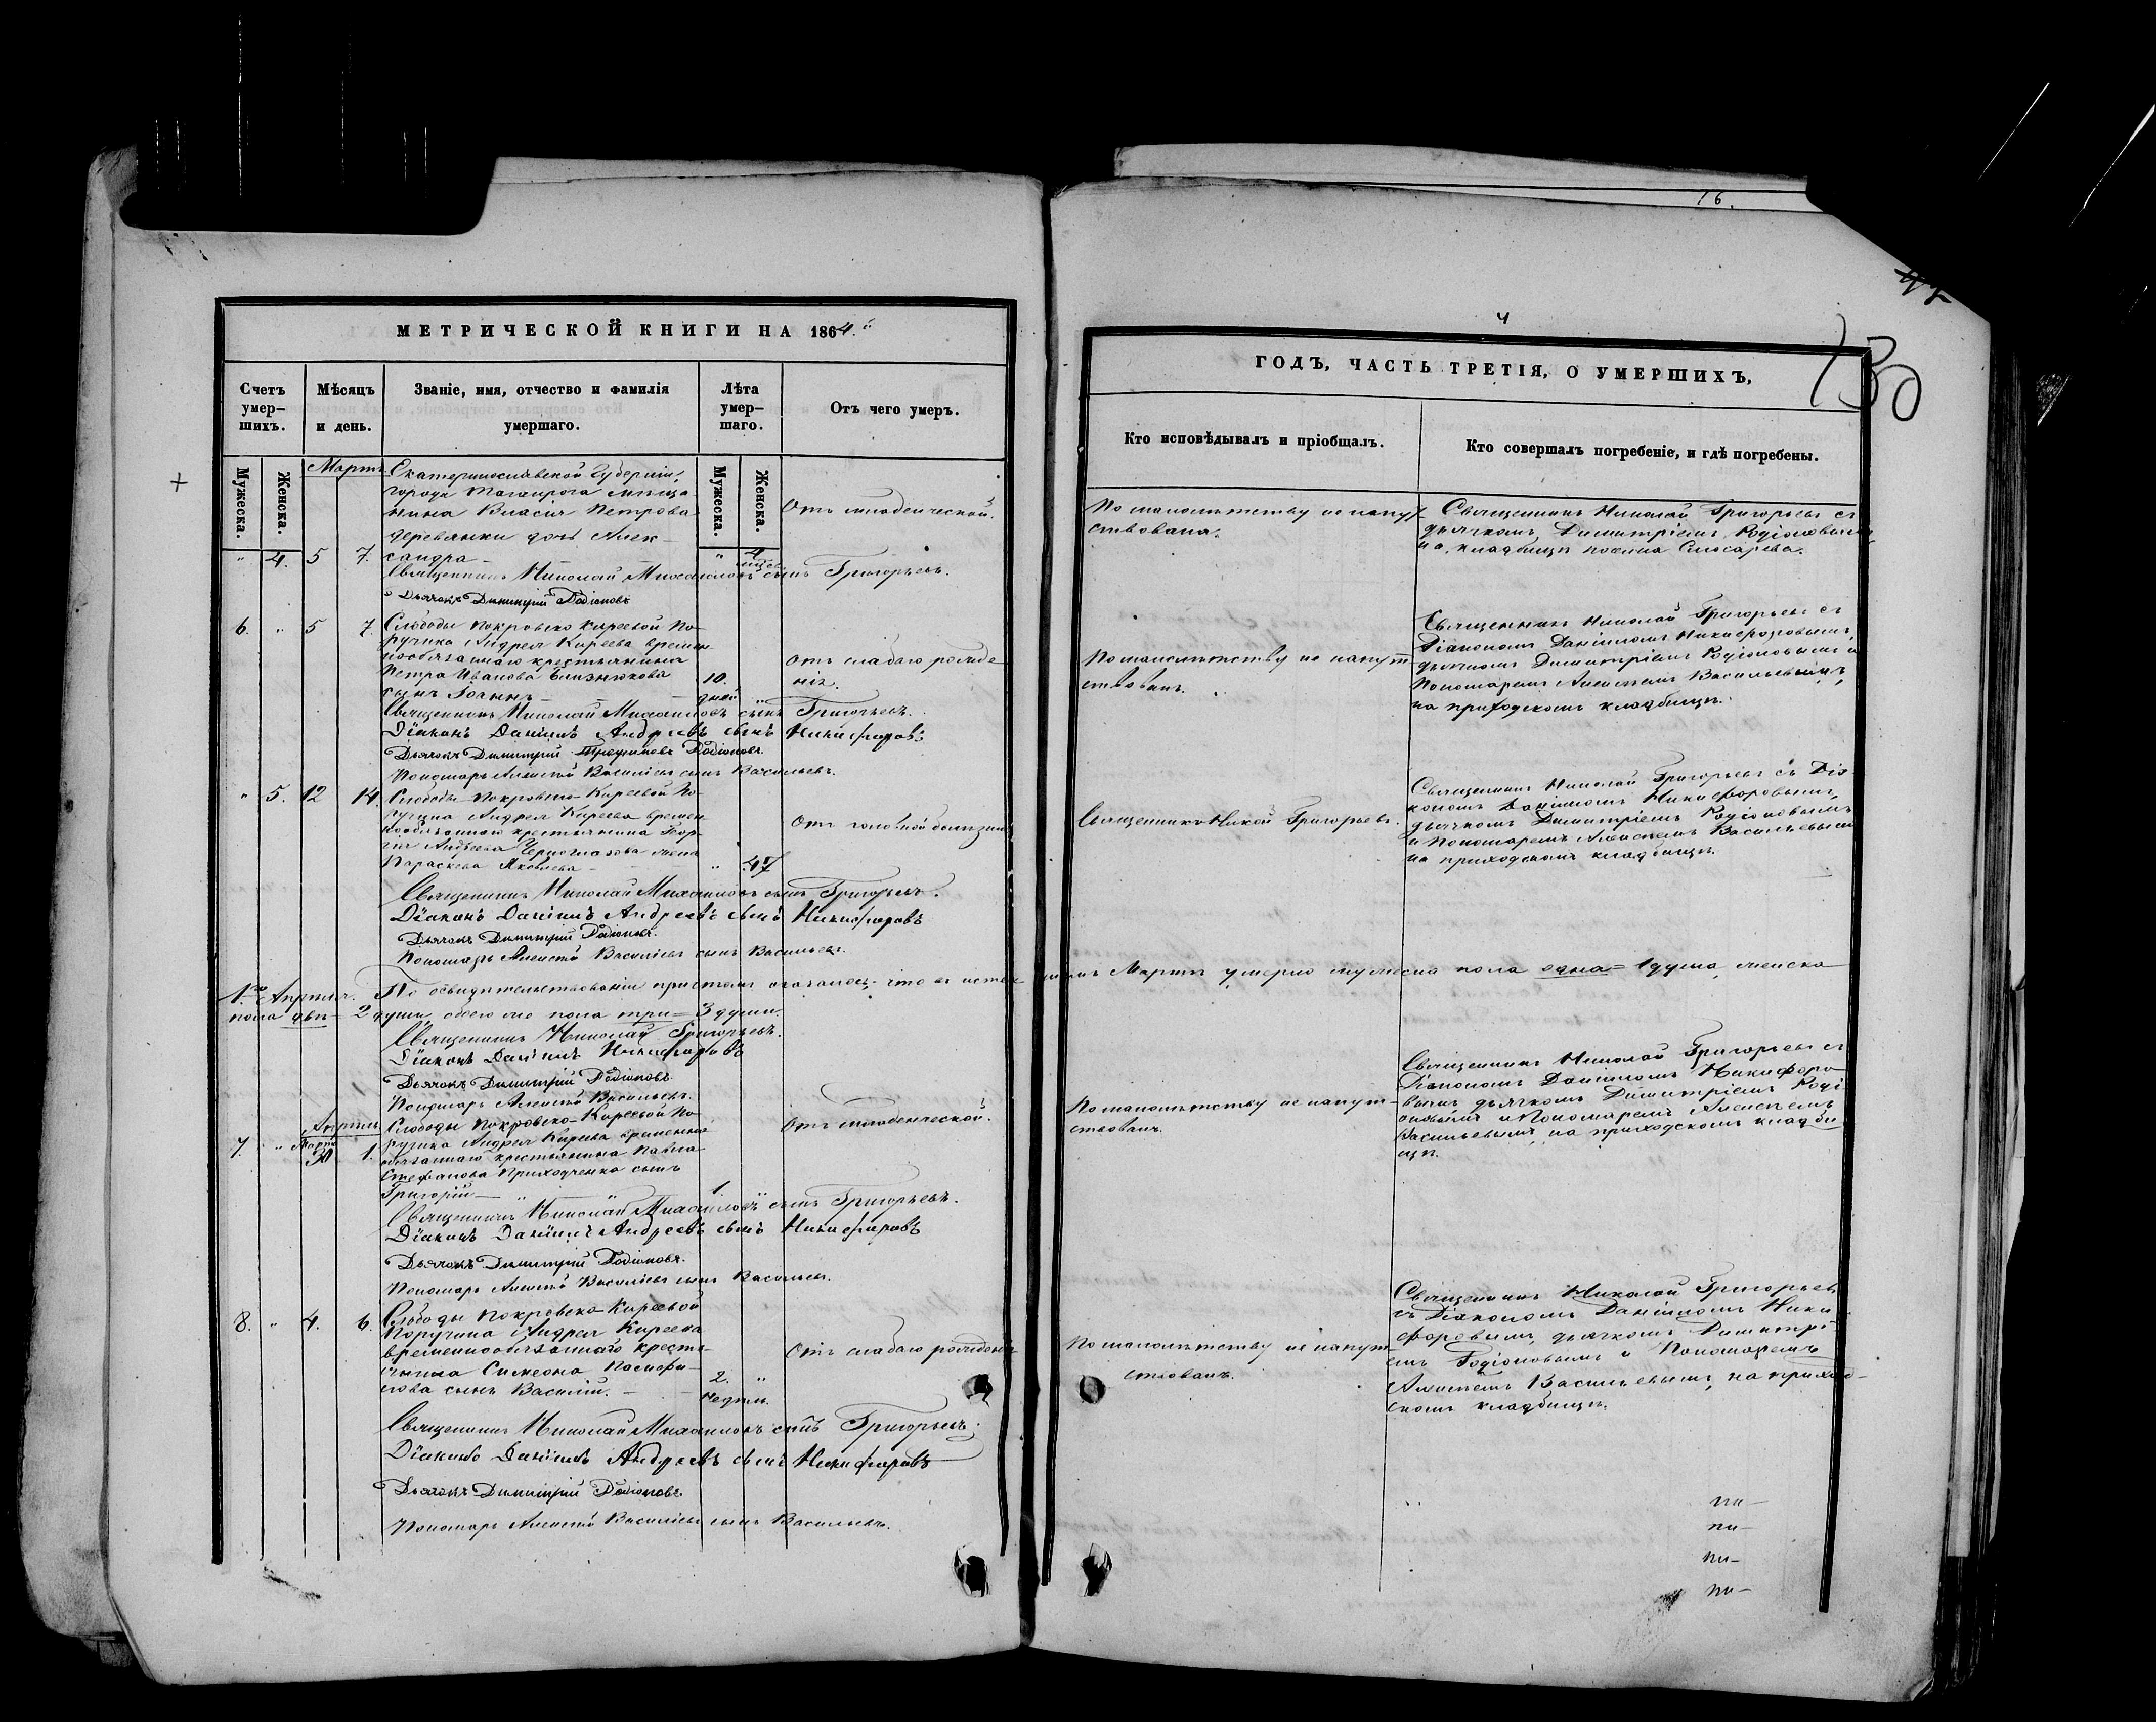 МЕТРИЧЕСКОЙ КНИГИ НА 1864.й
Счетъ умер-шихъ.
Мѣсяцъ и день.
Званіе, имя, отчество и фамилія умершаго.
Лѣта умер-шаго.
Отъ чего умеръ.
Мужеска.
Женска.
Мужеска.
Женска.
Мартъ.
Екатеринославской Губерніи,
города Таганрога мѣща-
нина Власія Петрова
Деревянки дочь Алек-
" 4. 5 7. сандра —
" 4 мѣсяц.
Отъ младенческой.
Священникъ Николай Михаиловъ сынъ Григорьевъ.
Дьячокъ Димитрій Родіоновъ
6. " 5 7. Слободы Покровско Киреевой По-
ручика Андрея Киреева времен-
нообязаннаго крестьянина
Петра Иванова Близнюкова
сынъ Іоаннъ —
10. дней "
Отъ слабаго рожде-
нія.
Священникъ Николай Михаиловъ сынъ Григорьевъ.
Діаконъ Даніилъ Андреевъ сынъ Никифоровъ
Дьячокъ Димитрій Трофимовъ Родіоновъ.
Пономарь Алексѣй Васильевъ сынъ Васильевъ.
" 5. 12 14. Слободы Покровско-Киреевой По-
ручика Андрея Киреева времен-
нообязаннаго крестьянина Геор-
гія Андреева Черноглазова жена
Параскева Яковлева —
" 47
Отъ головной болѣзни
Священникъ Николай Михаиловъ сынъ Григорьевъ.
Діаконъ Даніилъ Андреевъ сынъ Никифоровъ
Дьячокъ Димитрій Родіоновъ.
Пономарь Алексѣй Васильевъ сынъ Васильевъ.
1.го Апрѣля. По освидѣтельствованіи причтомъ оказалось, что въ истек шемъ Мартѣ умерло мужеска пола одна = 1 душа, женска
пола двѣ = 2 души, обоего же пола три = 3 души.
Священникъ Николай Григорьевъ.
Діаконъ Даніилъ Никифоровъ
Дьячокъ Димитрій Родіоновъ
Пономарь Алексѣй Васильевъ.
Апрѣль
7. " Марта 30 1. Слободы Покровско-Киреевой По-
ручика Андрея Киреева временно-
обязаннаго крестьянина Павла
Стефанова Приходченка сынъ
Григорій — "
1. "
Отъ младенческой.
Священникъ Николай Михаиловъ сынъ Григорьевъ.
Діаконъ Даніилъ Андреевъ сынъ Никифоровъ
Дьячокъ Димитрій Родіоновъ.
Пономарь Алексѣй Васильевъ сынъ Васильевъ.
8. " 4. 6. Слободы Покровско-Киреевой
Поручика Андрея Киреева
временнообязаннаго кресть-
янина Симеона
сынъ Василій. —
2. недѣли. "
Отъ слабаго рожденія
Священникъ Николай Михаиловъ сынъ Григорьевъ.
Діаконъ Даніилъ Андреевъ сынъ Никифоровъ
Дьячокъ Димитрій Родіоновъ.
Пономарь Алексѣй Васильевъ сынъ Васильевъ.
16.
130
ГОДЪ, ЧАСТЬ ТРЕТІЯ, О УМЕРШИХЪ,
Кто исповѣдывалъ и пріобщалъ.
Кто совершалъ погребеніе, и гдѣ погребены.
По малолѣтству не напут-
ствована.
Священникъ Николай Григорьевъ съ
дьячкомъ Димитріемъ Родіоновымъ,
на кладбищѣ поселка Слюсарева.
По малолѣтству не напут-
ствованъ.
Священникъ Николай Григорьевъ съ
Діакономъ Даніиломъ Никифоровымъ,
дьячкомъ Димитріемъ Родіоновымъ и
Пономаремъ Алексѣемъ Васильевымъ,
на приходскомъ кладбищѣ.
Священникъ Никой Григорьевъ.
Священникъ Николай Григорьевъ съ Діа-
кономъ Даніиломъ Никифоровымъ,
дьячкомъ Димитріемъ Родіоновымъ
и Пономаремъ Алексѣемъ Васильевымъ
на приходскомъ кладбищѣ.
По малолѣтству не напут-
ствованъ.
Священникъ Николай Григорьевъ съ
Діакономъ Даніиломъ Никифоро-
вымъ дьячкомъ Димитріемъ Роді-
оновымъ и Пономаремъ Алексѣемъ
Васильевымъ, на приходскомъ кладби-
щѣ.
По малолѣтству не напут-
ствованъ.
Священникъ Николай Григорьевъ
съ Діакономъ Даніиломъ Ники-
форовымъ, дьячкомъ Димитрі-
емъ Родіоновымъ и Пономаремъ
Алексѣемъ Васильевымъ, на приход-
скомъ кладбищѣ.